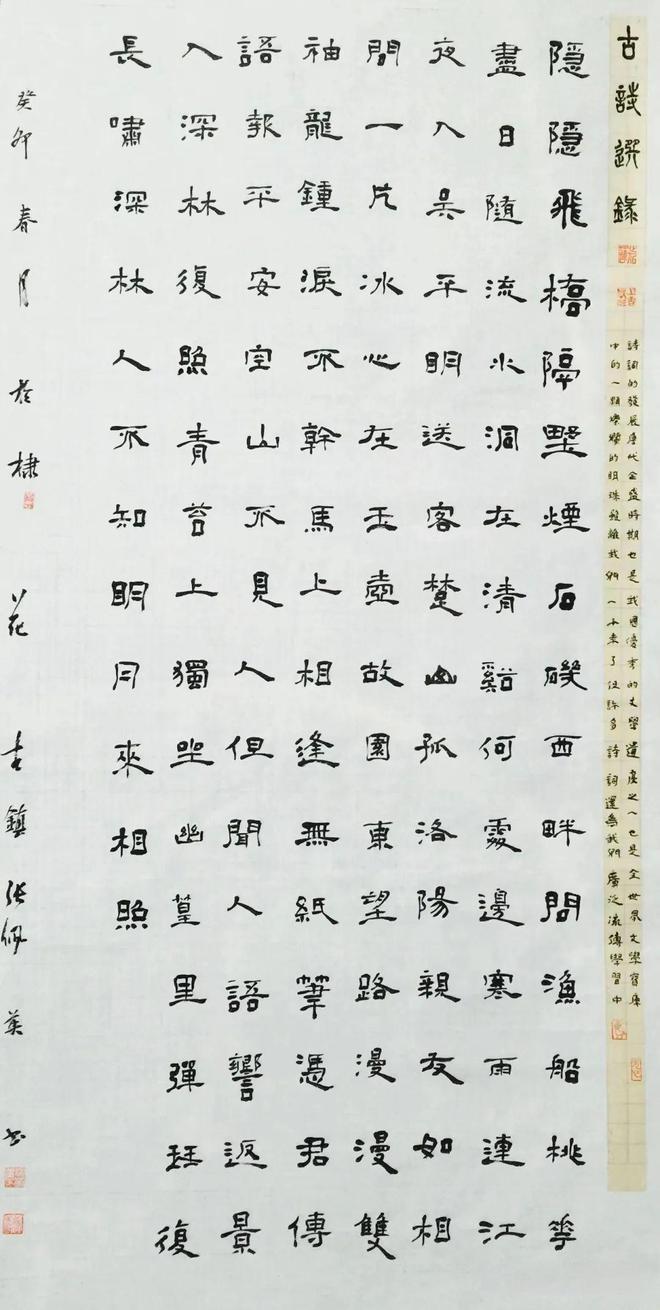 古詩選錄
詩詞的發展唐代全盛時期也是我國優秀的文學遺產之一也是全世界文學寶庫
中的一顆燦爛的明珠雖離我們一千來了但許多詩詞還為我們廣泛流傳學習中
隱隱飛橋隔墅煙石磯西畔問漁船桃花
盡日隨流水洞在清谿何處邊寒雨連江
夜入吳平明送客楚山孤洛陽親友如相
問一片冰心在玉壺故園東望路漫漫雙
袖龍鍾淚不幹馬上相逢無紙筆憑君傳
語報平安空山不見人但聞人語響返景
入深林復照青苔上獨坐幽篁里彈琴復
長嘯深林人不知明月來相照
癸卯春月於棣花古鎮張佩英書